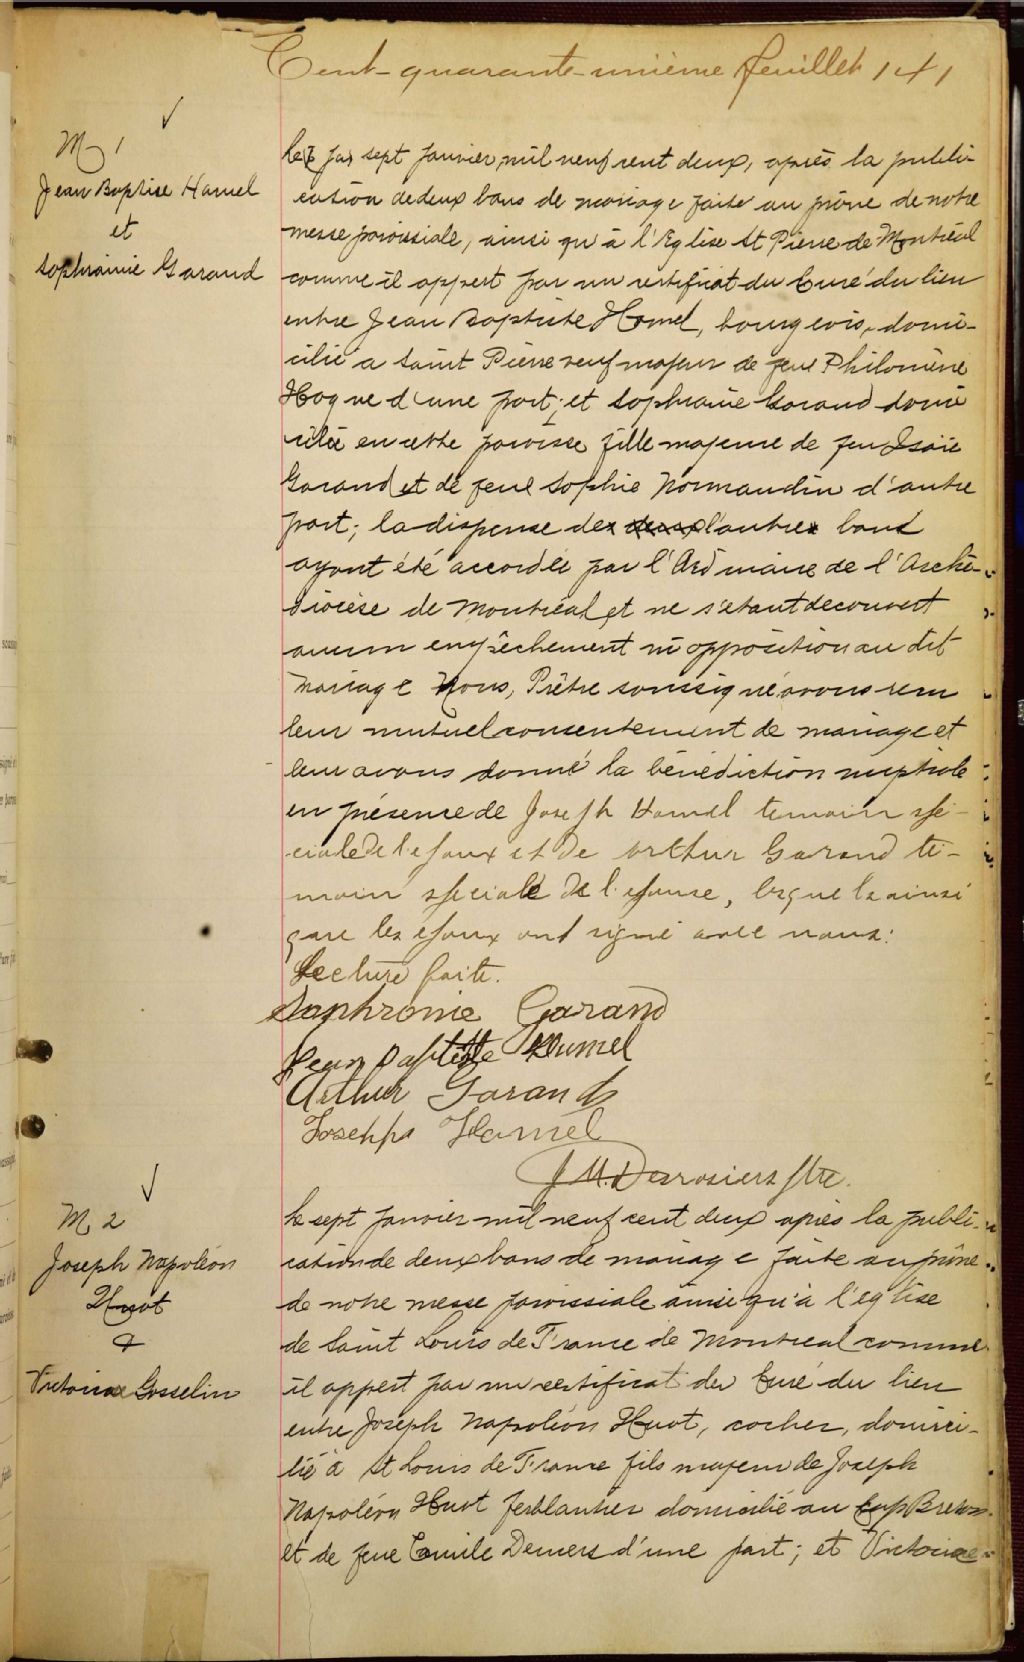 Cent-quarante-unième feuillet 141
M 1
Jean Baptise Hamel
et
Sophronie Garand
Le sept janvier mil neuf cent deux, après la publi-
cation de deux bans de mariage faite au prône de notre
messe paroissiale, ainsi qu'à l'Eglise St Pierre de Montréal
comme il appert par un certificat du Curé du lieu
entre Jean Baptiste Hamel, bourgeois, domi-
cilié a Saint Pierre veuf majeur de feue Philomène
Hogue d'une part; et Sophronie Garand domi
ciliée en cette paroisse fille majeure de feu Isaïe
Garand et de feue Sophie Normandin d'autre
part; la dispense de l'autre banc
ayant été accordée par l'Ordinaire de l'Archi-
diocèse de Montréal et ne s'étant decouvert
aucun empêchement ni opposition au dit
Mariage Nous, Prêtre soussigné avons reçu
leur mutuel consentement de mariage et
leur avons donné la bénédiction nuptiale
en présence de Joseph Hamel temoin spé-
ciale de l'epoux et de Arthur Garand té-
moin speciale de l'epouse, lesquels ainsi
que les epoux ont signé avec nous:
Lecture faite.
Sophronie Garand
Jean Baptiste Hamel
Arthur Garand
Joseph Hamel
J M. Desrosiers Ptre.
M 2
Joseph Napoléon
Huot
&
Victoria Gosselin
Le sept janvier mil neuf cent deux après la publi-
cation de deux bans de mariage faite au prône
de notre messe paroissiale ainsi qu'à l'eglise
de Saint Louis de France de Montreal comme
il appert par un certificat du Curé du lieu
entre Joseph Napoléon Huot, cocher, domici-
lié à St Louis de France fils majeur de Joseph
Napoléon Huot ferblantier domicilié au Cap Breton
et de feue Emile Demers d'une part; et Victoria